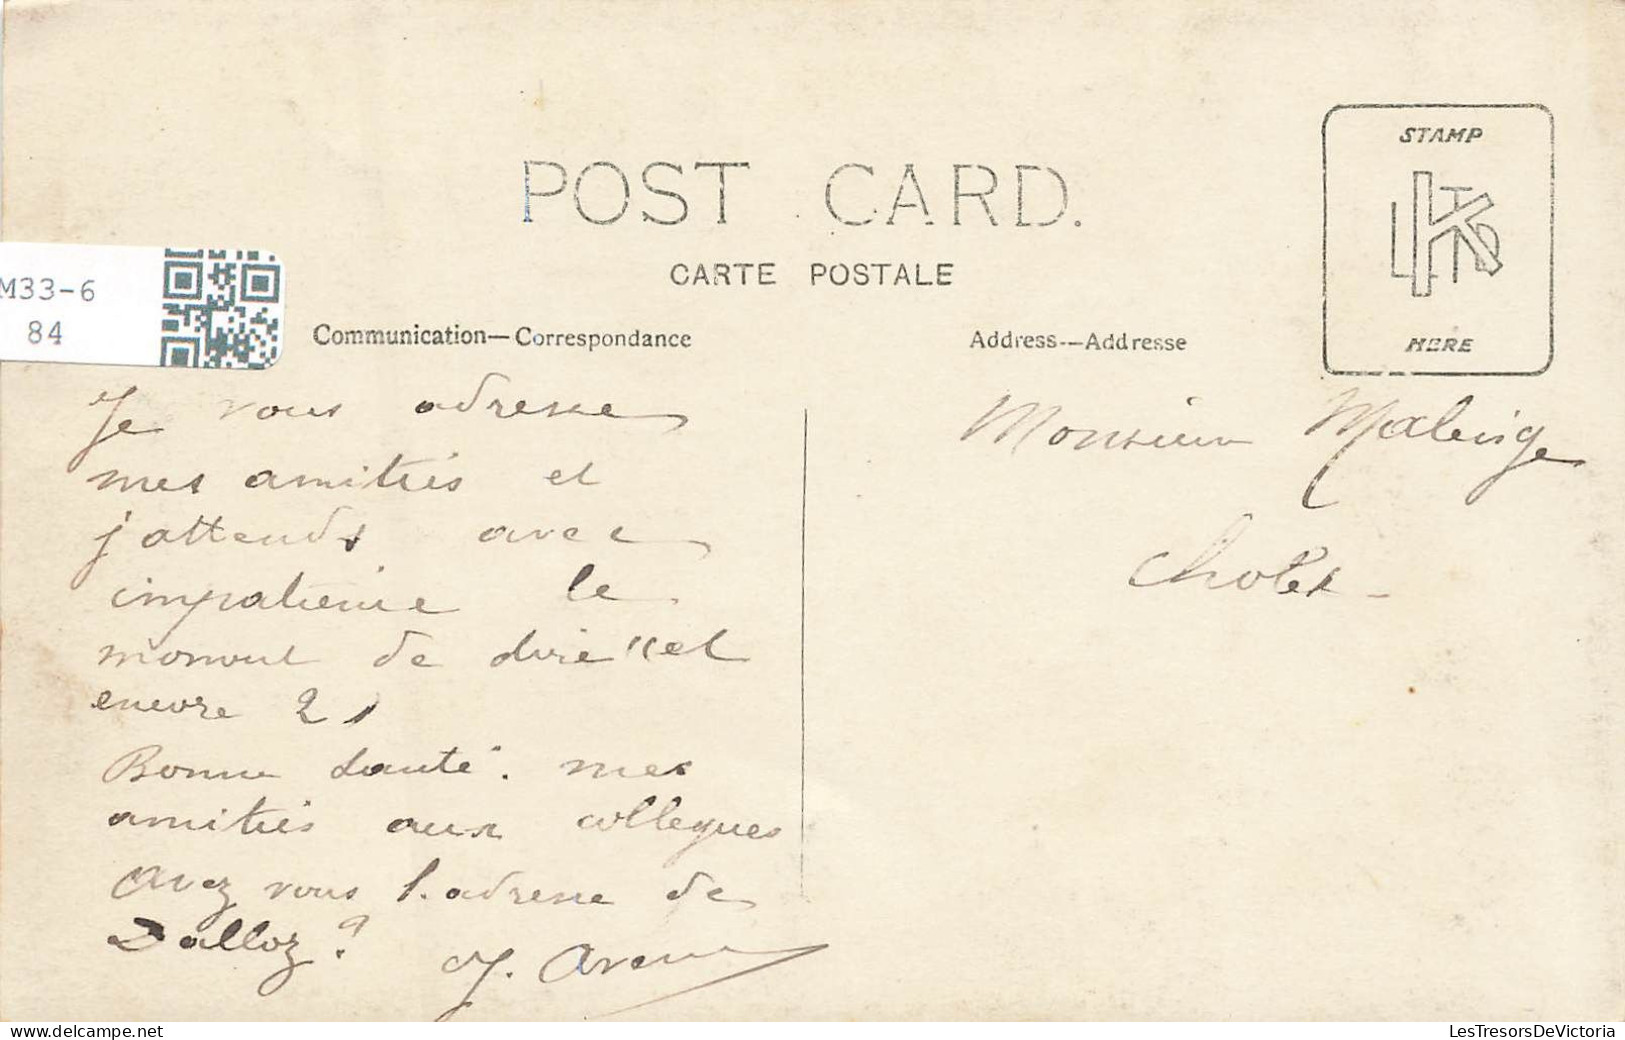 POST CARD.
CARTE POSTALE
STAMP
KLTD
HERE
M33-6
84
Communication—Correspondance
Address--Addresse
Je vous adresse
mes amitiés et
j'attends avec
impatience le
moment de dire "et
encore 21
Bonne santé. mes
amitiés aux collegues
Avez vous l'adresse de
Dalloz?
Monsieur Malinge
Cholet -
LesTresorsDeVictoria